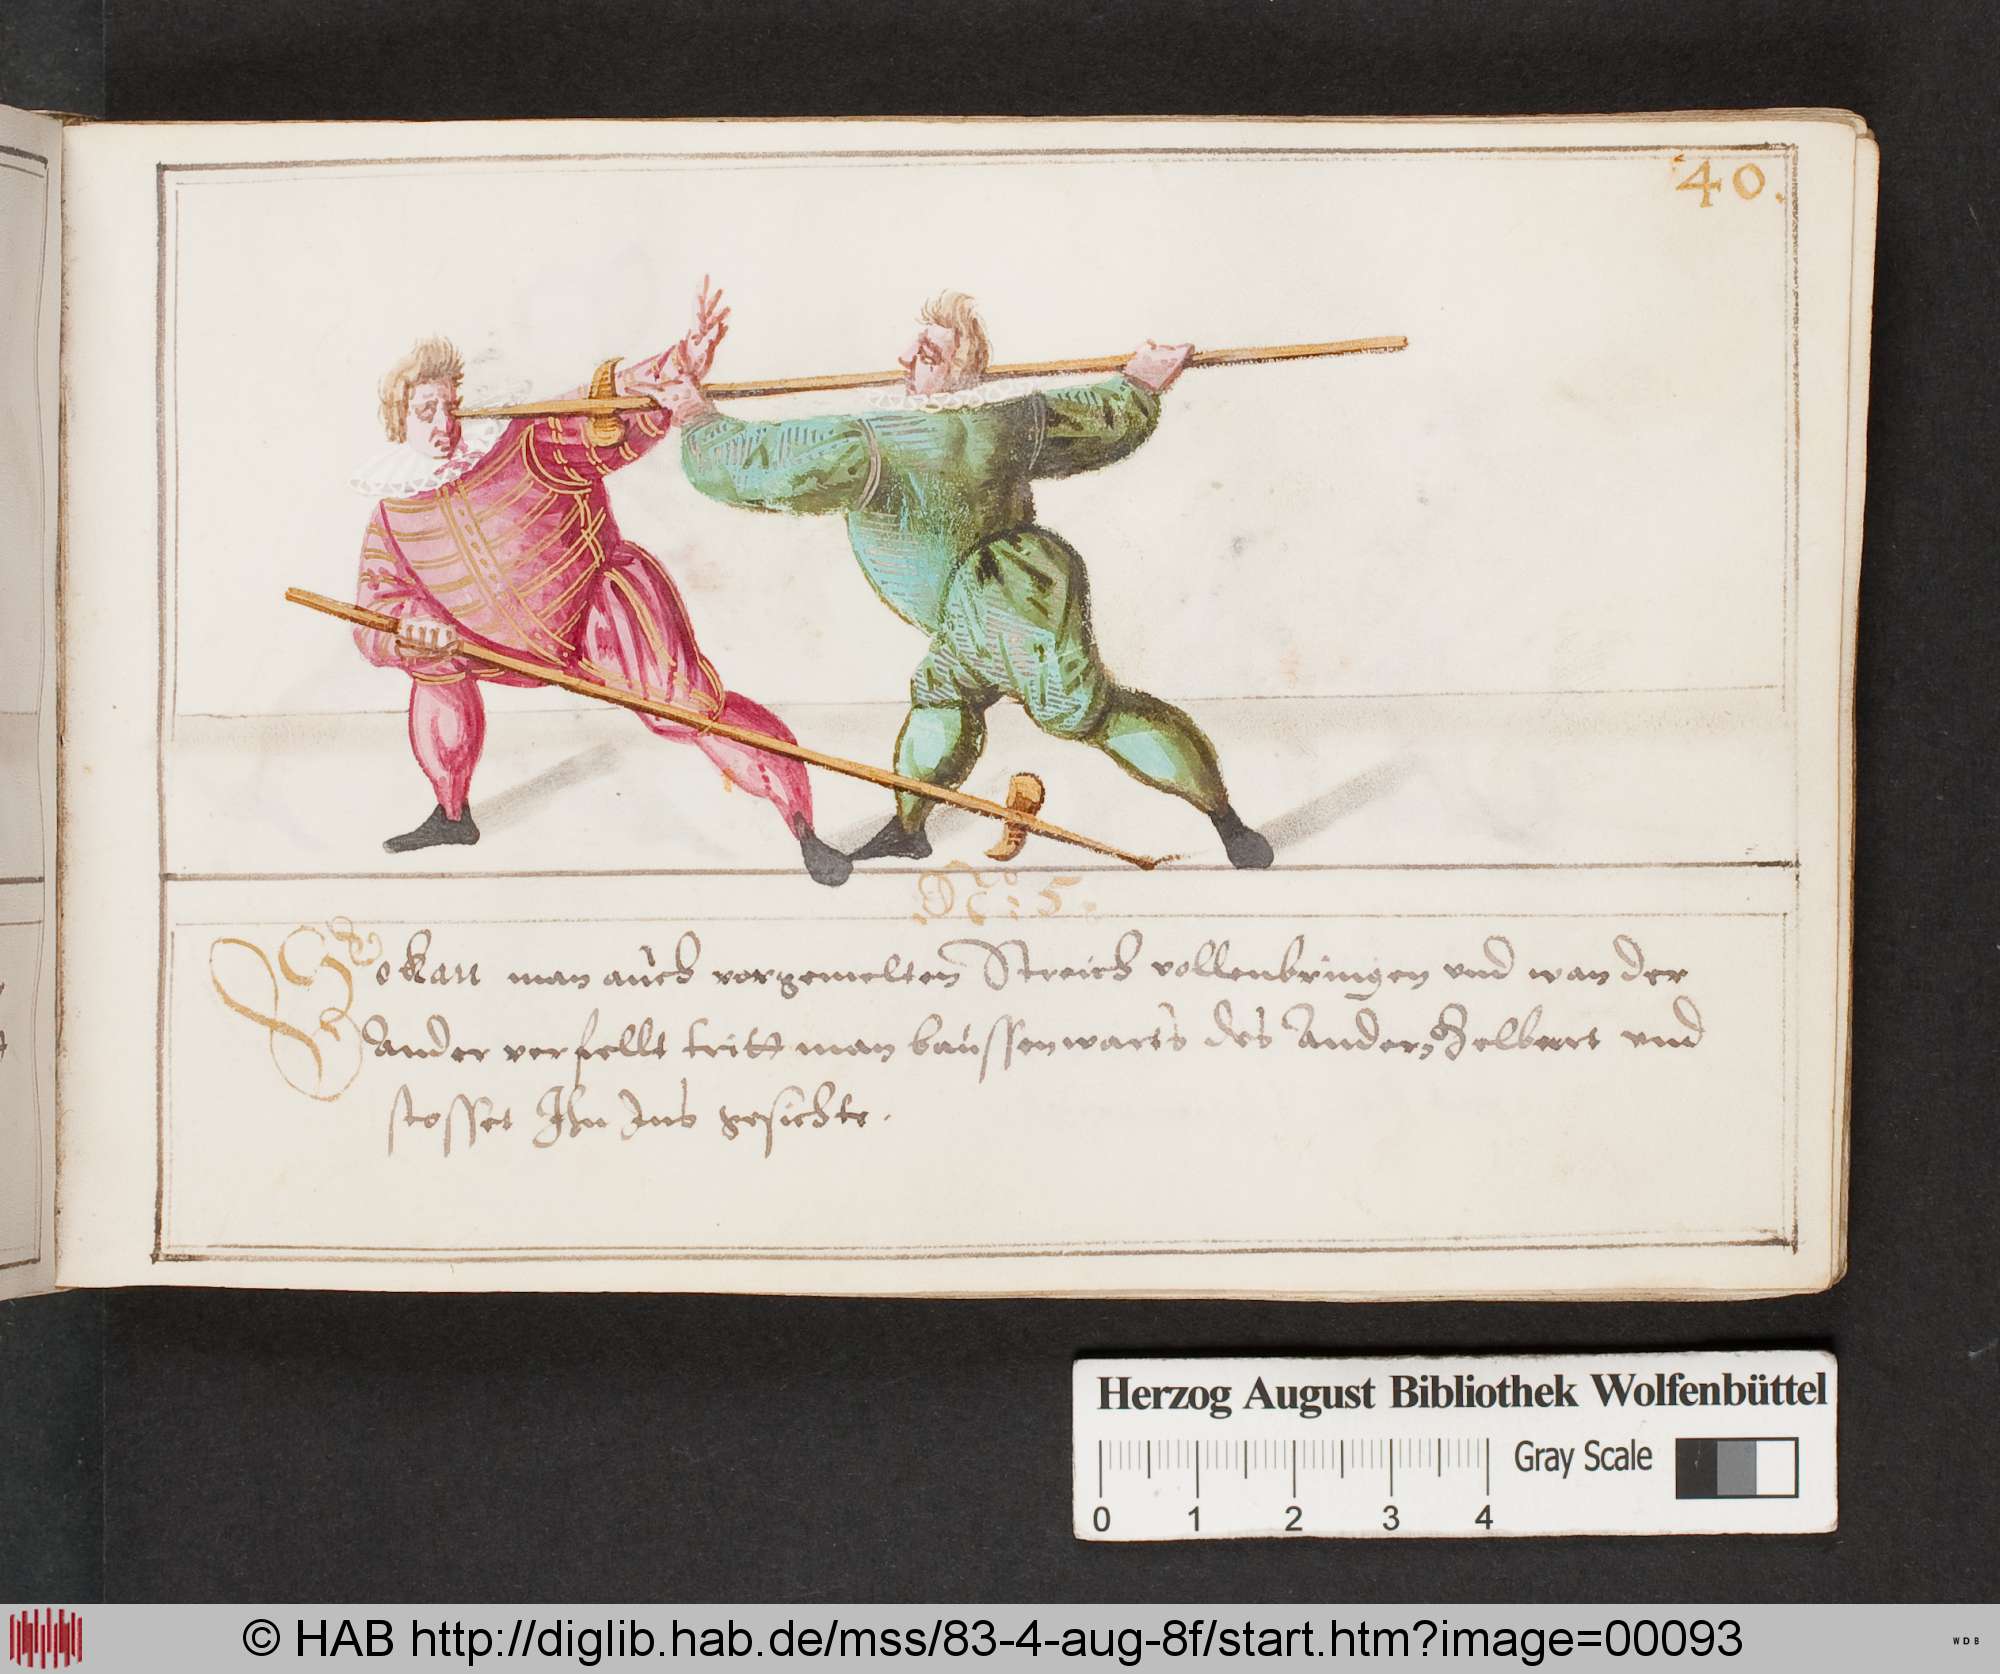 40.
No: 5.
So kan man auch vorgemelten Streich vollenbringen vnd wan der
Ander verfellt tritt man baussenwarts des Andern Helbart vnd
stosset Ihn Ins gesichte.
Herzog August Bibliothek Wolfenbüttel
Gray Scale
0 1 2 3 4
© HAB http://diglib.hab.de/mss/83-4-aug-8f/start.htm?image=00093
WDB